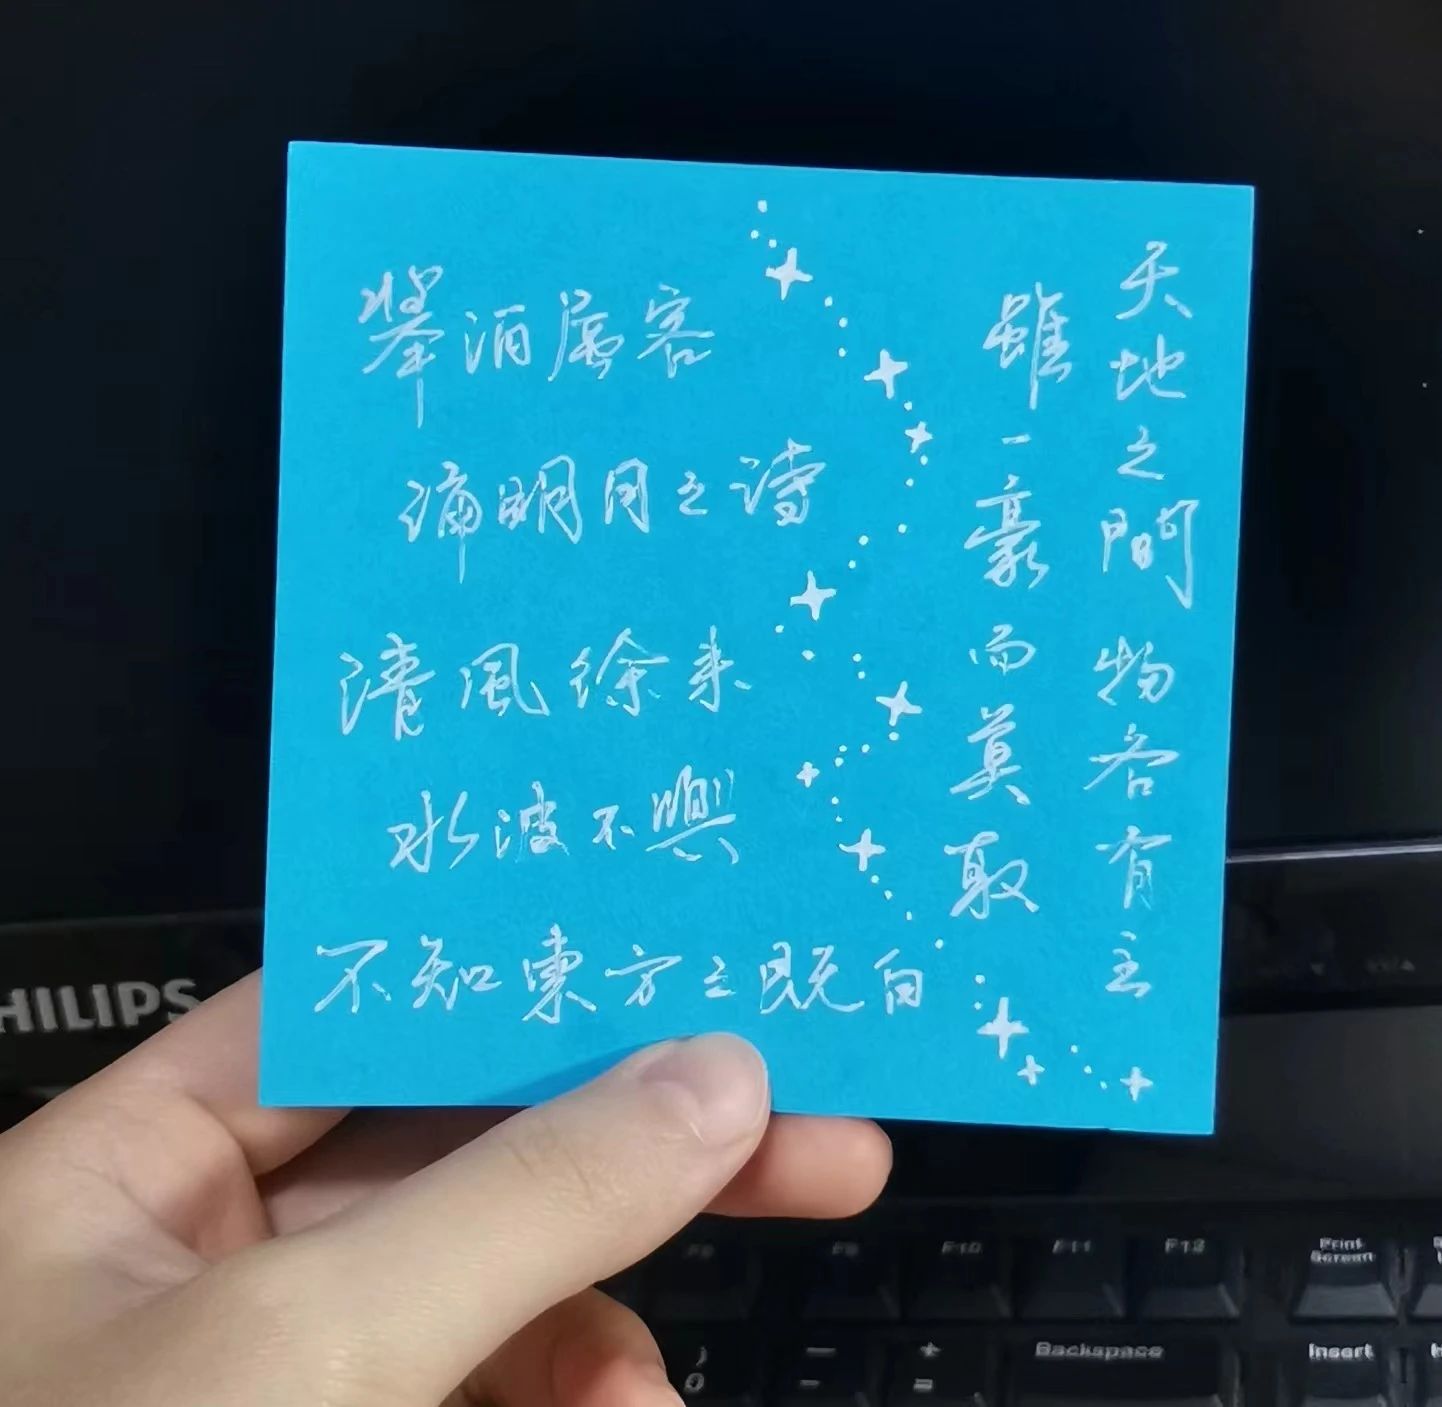 天地之間物各有主
雖一豪而莫取
舉酒屬客
誦明月之詩
清風徐来
水波不興
不知東方之既白
HILIPS
F9
F10
F11
F12
Print Screen
)
0
—
-
+
=
Backspace
Insert